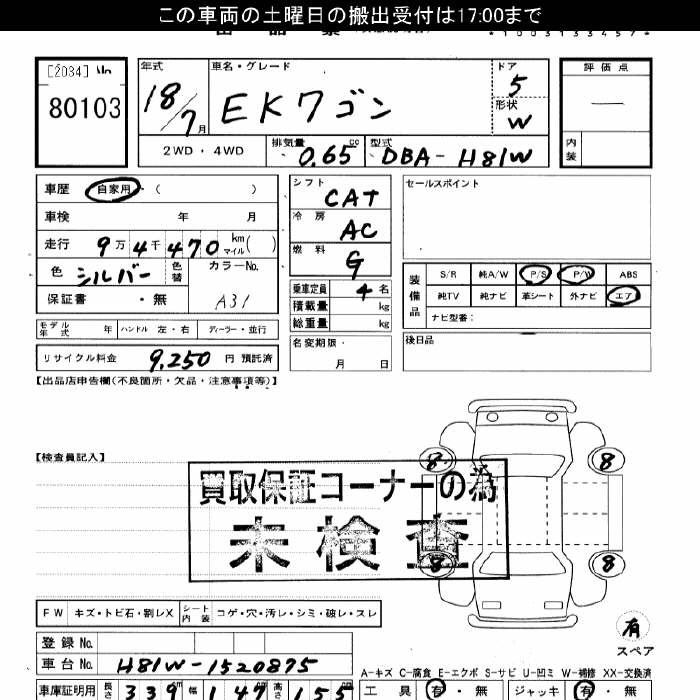 この車両の土曜日の搬出受付は17:00まで
*1003133457*
[2034] No
80103
年式
18/7月
車名・グレード
EKワゴン
ドア
5
形状
W
評価点
―
内装
2WD・4WD
排気量
0.65 cc
型式
DBA-H81W
車歴 自家用 ( )
車検 年 月
走行 9万4千470 km マイル( )
色 シルバー 色替
カラーNo.
A31
保証書 ・無
モデル年式 年 ハンドル 左・右 ディーラー・並行
リサイクル料金 9,250 円 預託済
シフト CAT
冷房 AC
燃料 G
乗車定員 4 名
積載量 kg
総重量 kg
名変期限・
月 日
セールスポイント
装備品
S/R 純A/W P/S P/W ABS
純TV 純ナビ 革シート 外ナビ エア
ナビ型番:
後日品
【出品店申告欄(不良箇所・欠品・注意事項等)】
【検査員記入】
買取保証コーナーの為
未検査
8 8
8 8
有
スペア
FW キズ・トビ石・割レX シート内装 コゲ・穴・汚レ・シミ・破レ・スレ
登録No.
車台No. H81W-1520875
A-キズ C-腐食 E-エクボ S-サビ U-凹ミ W-補修 XX-交換済
車庫証明用 長さ 339 幅 147 高さ 155
工具 有・無 ジャッキ 有・無